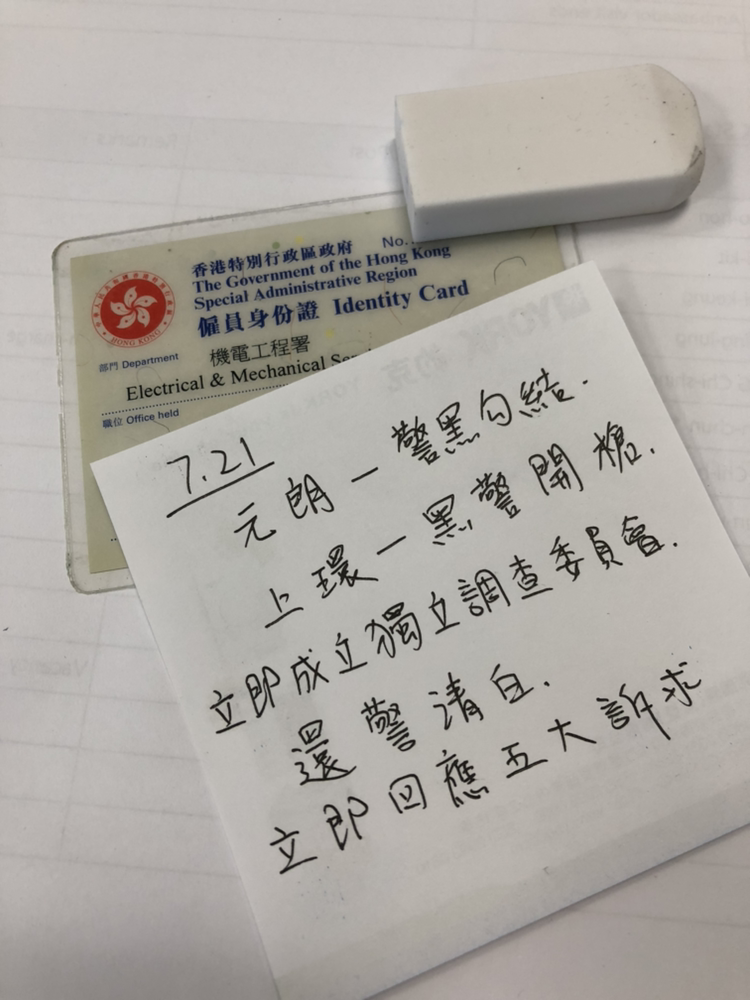 No.
香港特別行政區政府
The Government of the Hong Kong
Special Administrative Region
僱員身份證 Identity Card
HONG KONG
部門 Department
機電工程署
Electrical & Mechanical
職位 Office held
7.21
元朗—警黑勾結.
上環—黑警開槍.
立即成立獨立調查委員會.
還警清白.
立即回應五大訴求